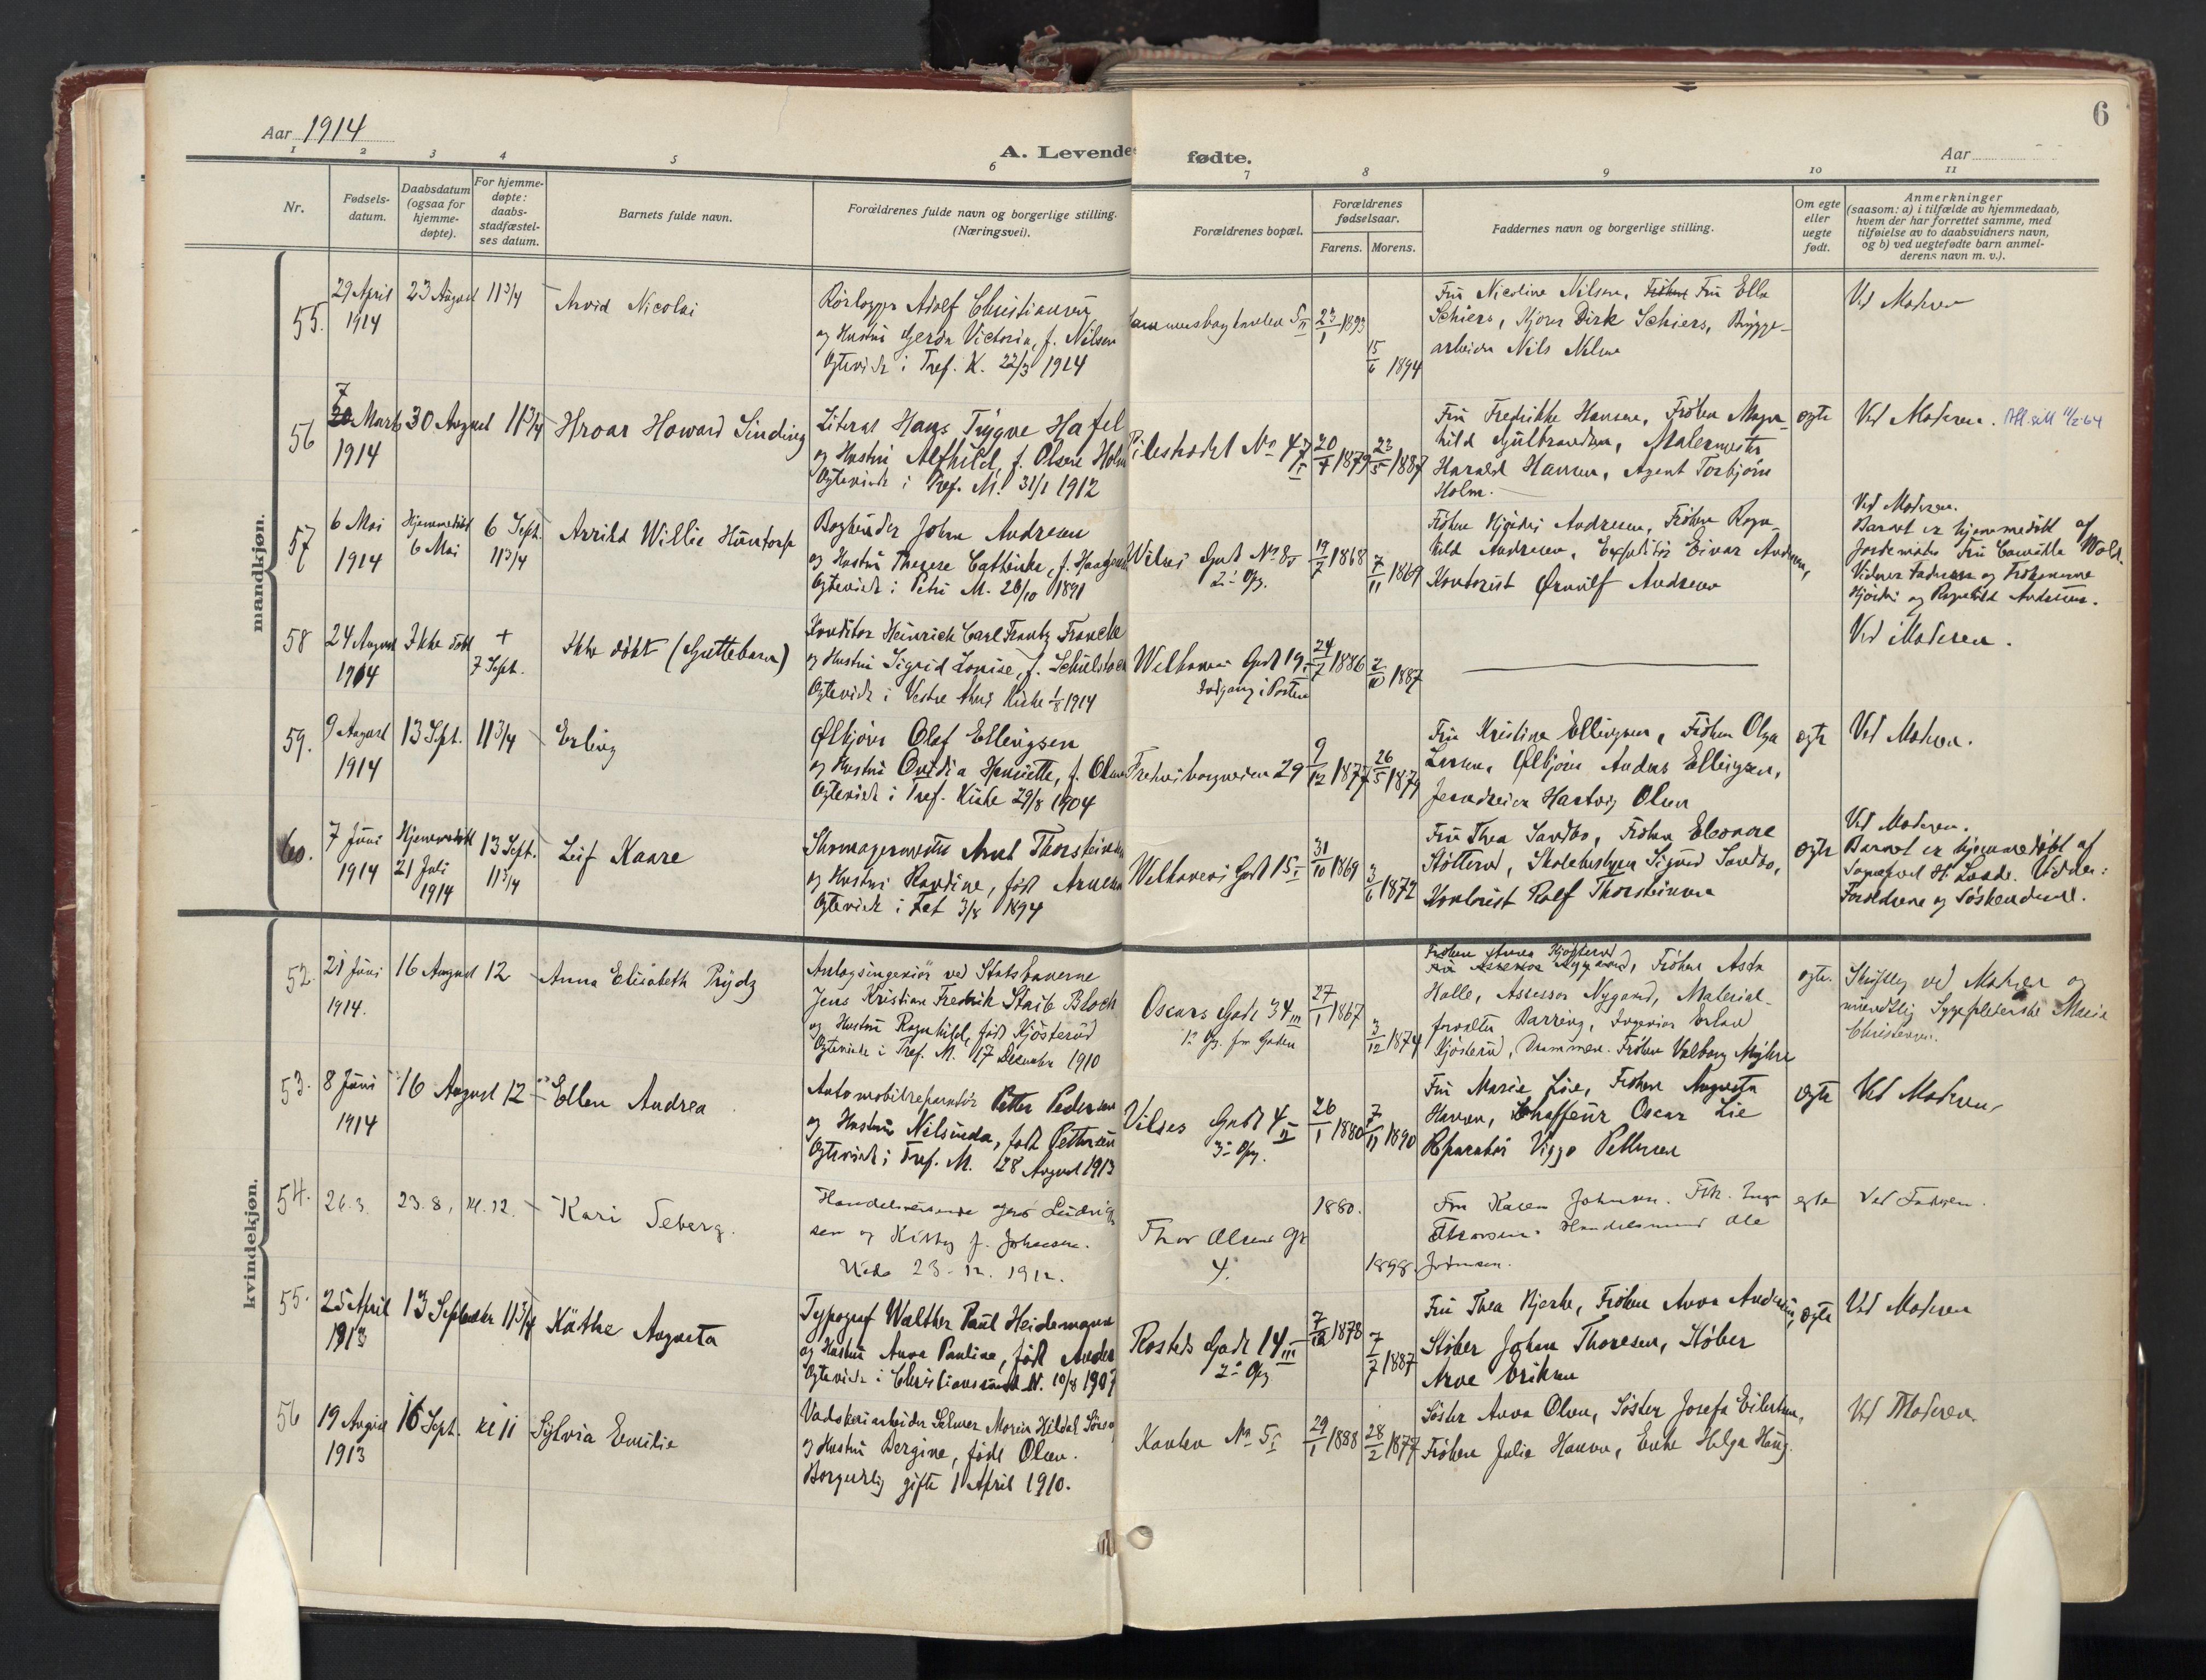 Aar 1914
A. Levende fødte.
6
Aar
1 2 3 4 5 6 7 8 9 10 11
Nr.
Fødsels-
datum.
Daabsdatum
(ogsaa for
hjemme-
døpte).
For hjemme-
døpte:
daabs-
stadfæstel-
ses datum.
Barnets fulde navn.
Forældrenes fulde navn og borgerlige stilling.
(Næringsvei).
Forældrenes bopæl.
Forældrenes
fødselsaar.
Farens. Morens.
Faddernes navn og borgerlige stilling.
Om egte
eller
uegte
født.
Anmerkninger
(saasom: a) i tilfælde av hjemmedaab,
hvem der har forrettet samme, med
tilføielse av to daabsvidners navn,
og b) ved uegtefødte barn anmel-
derens navn m. v.).
mandkjøn.
55.
29 April
1914
23 August
11 3/4
Arvid Nicolai
Adolf Christiansen
og Hustru Gerda Victoria, f. Nilsen
Ægtevidt i Tref. K. 22/3 1914
23/1 1893
15/6 1894
Fru Nicoline Nilsen, Fru Ella
Schiers, Dirk Schiers, Brygge-
arbeider Nils Nilsen
Ved Moderen
56
7 Marts
1914
30 August
11 3/4
Hroar Howard Sinding
Literat Hans Trygve Hafel
og Hustru Alfhild, f. Olsen Holm
Ægtevidt i Tref. M. 31/1 1912
Pilestrædet No 47 I
20/7 1879
23/5 1887
Fru Fredrikke Hansen, Frøken Magn-
hild Gulbrandsen, Malermester
Harald Hansen, Agent Torbjørn
Holm.
ægte
Ved Moderen.
57
6 Mai
1914
Hjemmedøbt
6 Mai
6 Sept.
11 3/4
Arrild Willie Huntorp
Bogbinder Johan Andresen
og Hustru Therese Cathinka, f.
Ægtevidt i Petri M. 26/10 1891
Gade No 8
2' Opg.
1868
7/11 1869
Frøken Hjørdis Andresen, Frøken Ragn-
hild Andresen, Expeditør Einar Andresen,
Kontorist Ørnulf Andresen
Ved Moderen.
Barnet er hjemmedøbt af
Jordemoder Fru Wold.
Vidner Faderen og Frøknerne
Hjørdis og Ragnhild Andresen.
58
24 August
1914
Ikke døbt
+
7 Sept.
Ikke døbt (Guttebarn)
Konditor Heinrich Carl Frantz Francke
og Hustru Sigrid Louise, f.
Ægtevidt i Vestre Kirke 1/8 1914
Welhavens Gade 19
Indgang i Porten
24/7 1886
2/10 1887
Ved Moderen.
59.
9 August
1914
13 Sept.
11 3/4
Erling
Ølkjører Olaf Ellingsen
og Hustru Ovidia Henriette, f. Olsen
Ægtevidt i Tref. Kirke 29/8 1904
Fredensborgveien 29
9/12 1877
26/5 1879
Fru Kristine Ellingsen, Frøken Olga
Larsen, Ølkjører Anders Ellingsen,
Jerndreier Hartvig Olsen
ægte
Ved Moderen.
60.
7 Juni
1914
Hjemmedøbt
21 Juli
1914
13 Sept.
11 3/4
Leif Kaare
Skomagermester Arnt Thorstensen
og Hustru Randine, født Arnesen
Ægtevidt i 3/8 1894
Welhavens Gade 15 I
31/10 1869
3/6 1872
Fru Thea Sandbo, Frøken Eleonore
Støtterud, Skolebestyrer Sigurd Sandbo,
Kontorist Rolf Thorstensen
ægte
Ved Moderen.
Barnet er hjemmedøbt af
Sogneprest H. Lunde. Vidner:
Forældrene og Søskendene.
kvindekjøn.
52.
21 Juni
1914.
16 August
12
Anna Elisabeth Prydz
Anlægsingeniør ved Statsbanerne
Jens Kristian Fredrik Staib Bloch
og Hustru Ragnhild, født Kjøsterud
Ægtevidt i Tref. M. 17 December 1910
Oscars Gade 34 III
1' Opg. fra Gaden
27/1 1867
3/12 1874
Frøken Anna Kjøsterud
Frøken Asta
Halle, Assessor Nygaard, Material-
forvalter Barring, Ingeniør Erland
Kjøsterud, Drammen. Frøken Valborg Myhre
ægte.
Skriftlig ved Moderen og
mundtlig Sygepleierske Marie
Christensen.
53.
8 Juni
1914
16 August
12
Ellen Andrea
Automobilreparatør Petter Pedersen
og Hustru Nilsinda, født Pettersen
Ægtevidt i Tref. M. 28 August 1913
Vibes Gade 4 II
3' Opg.
26/1 1880
7/11 1890
Fru Marie Lie, Frøken Augusta
Hansen, Chaffeur Oscar Lie
Reparatør Viggo Pettersen
ægte
Ved Moderen
54.
26.3.
23.8.
kl. 12.
Kari Teberg.
Handelsreisende Jens Ludvig-
sen og Kitty f. Johnsen.
Viede 23-12. 1912.
Thor Olsens gt
4.
1880.
1898.
Fru Karen Johnsen. Frk. Inga
Thorsen. Handelsmand Ole
Johnsen.
egte
Ved Faderen.
55.
25 April
1913
13 September
11 3/4
Käthe Augusta
Typograf Walther Paul Heidemann
og Hustru Anna Pauline, født Anders
Ægtevidt i Christianssand N. 10/8 1907
Rosteds Gade 14 III
2' Opg
7/12 1878
7/7 1887
Fru Thea Bjerke, Frøken Anna Andersen,
Støber Johan Thoresen, Støber
Arne Eriksen
ægte
Ved Moderen
56
19 August
1913
16 Sept.
kl 11
Sylvia Emilie
Vadskeriarbeider Selmer Morin Hildal
og Hustru Bergine, født Olsen.
Borgerlig gifte 1 April 1910.
No 5 I
29/1 1888
28/2 1877
Søster Anna Olsen, Søster Josefa Eilertsen,
Frøken Julie Hansen, Enke Helga Haug.
Ved Moderen.